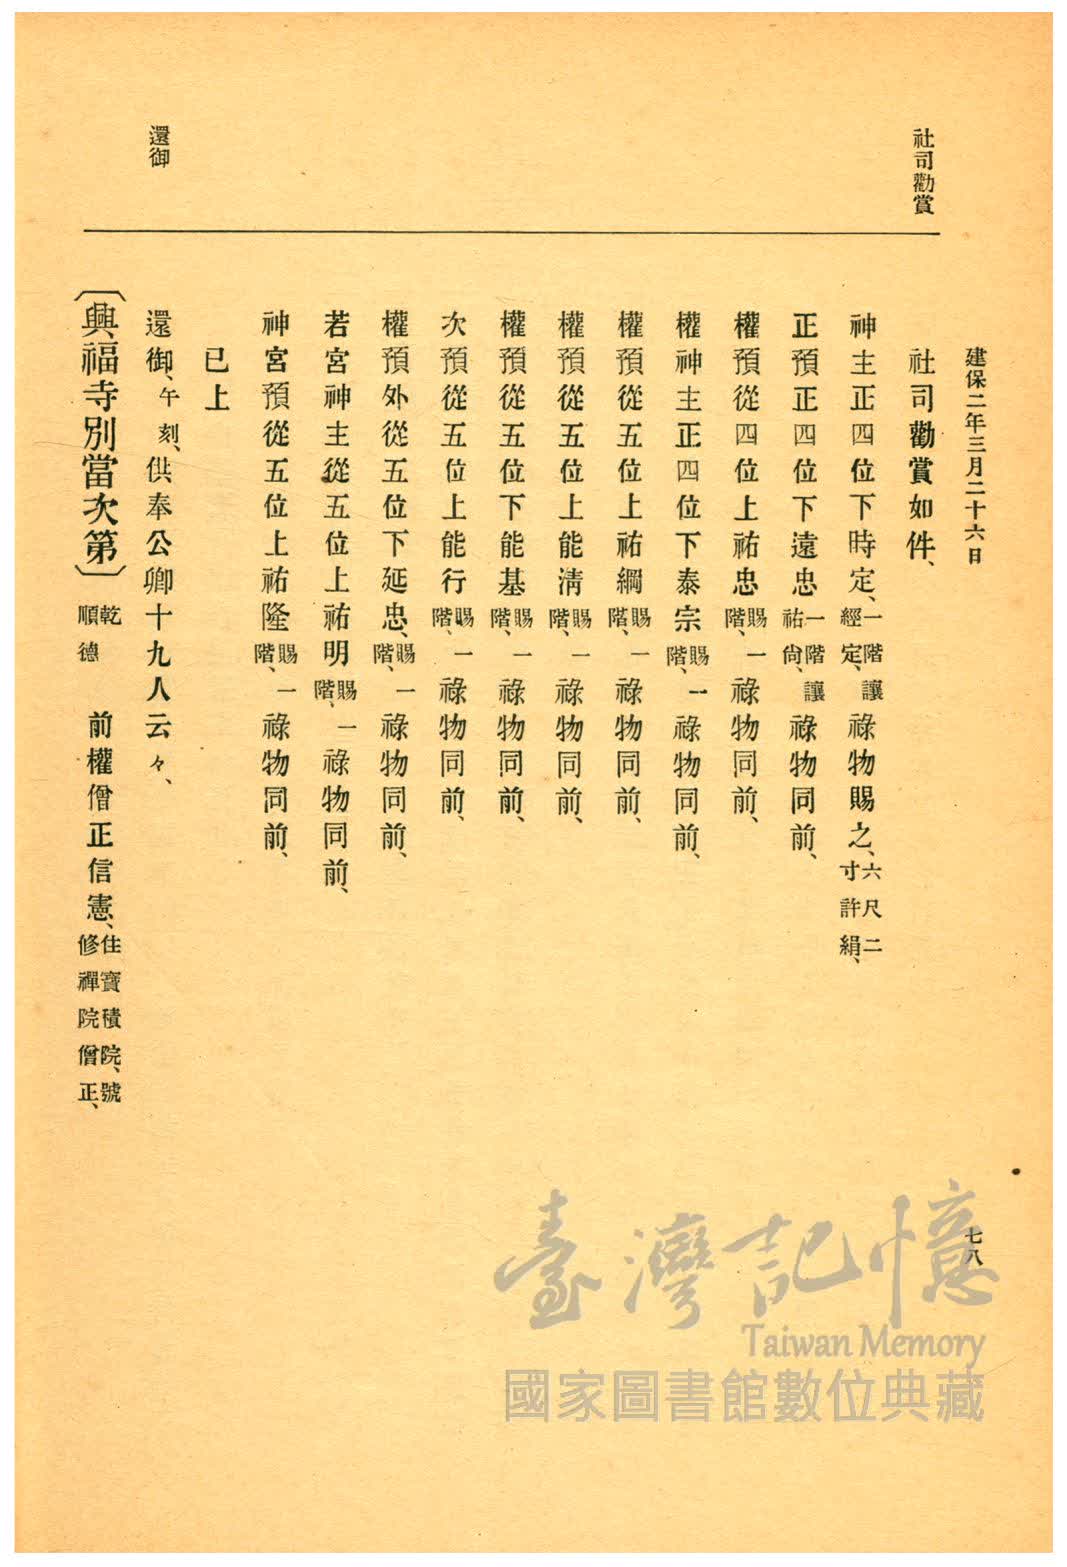 建保二年三月二十六日
七八
社司勸賞
社司勸賞如件、
神主正四位下時定、一階讓經定、祿物賜之、六尺二寸許絹、
正預正四位下遠忠一階讓祐尙、祿物同前、
權預從四位上祐忠賜一階、祿物同前、
權神主正四位下泰宗賜一階、祿物同前、
權預從五位上祐綱賜一階、祿物同前、
權預從五位上能淸賜一階、祿物同前、
權預從五位下能基賜一階、祿物同前、
次預從五位上能行賜一階、祿物同前、
權預外從五位下延忠、賜一階、祿物同前、
若宮神主從五位上祐明賜一階、祿物同前、
神宮預從五位上祐隆賜一階、祿物同前、
已上
還御
還御、午刻、供奉公卿十九人云々、
〔興福寺別當次第〕乾順德 前權僧正信憲、住寶積院、號修禪院僧正、
臺灣記憶
Taiwan Memory
國家圖書館數位典藏